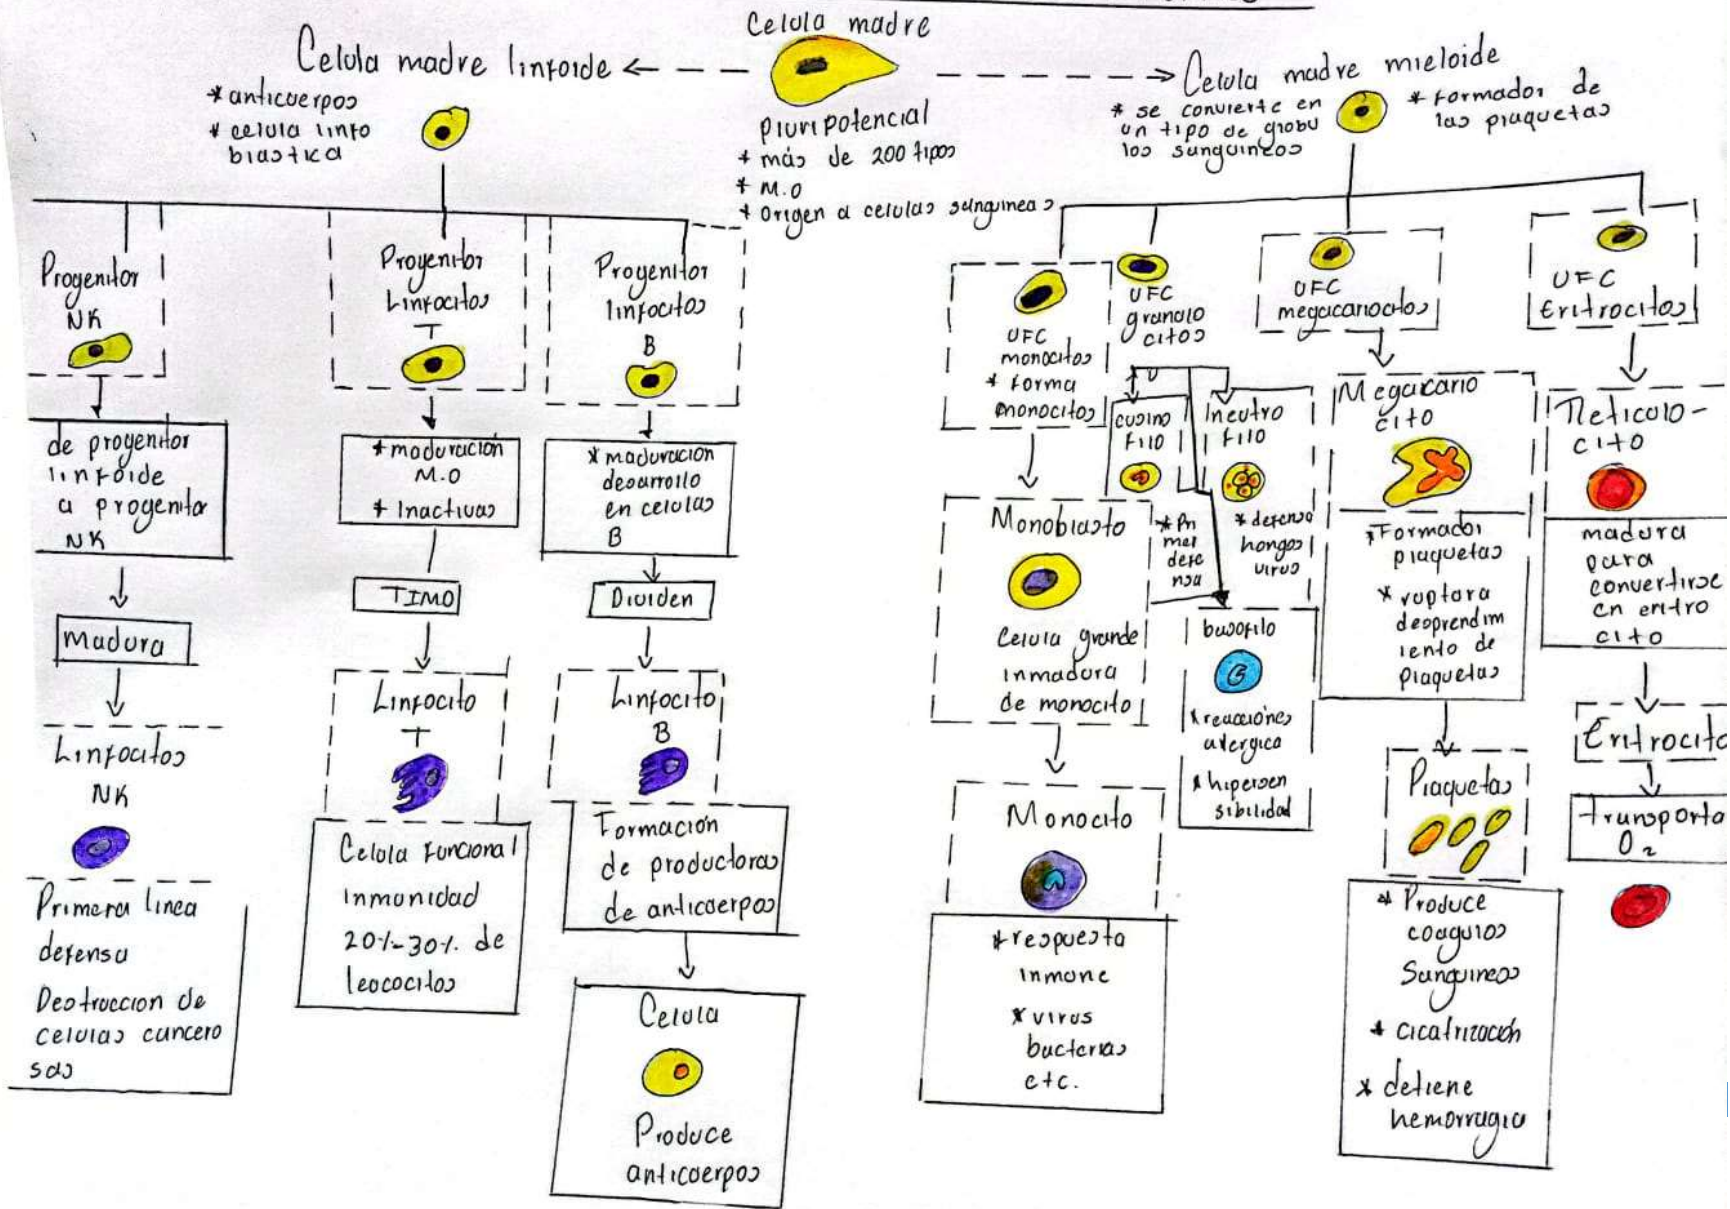 Celula madre
Celula madre linfoide
* anticuerpos
* celula linfo
blastica
pluripotencial
* más de 200 tipos
* M.O
* Origen a celulas sanguineas
Celula madre mieloide
* se convierte en
un tipo de globu
los sanguineos
* formador de
las plaquetas
Progenitor
NK
de progenitor
linfoide
a progenitor
NK
Madura
Linfocitos
NK
Primera linea
defensa
Destruccion de
celulas cancero
sas
Progenitor
Linfocitos
T
* maduración
M.O
* Inactivas
TIMO
Linfocito
T
Celula funcional
inmunidad
20%-30% de
leococitos
Progenitor
linfocitos
B
* maduración
desarrollo
en celulas
B
Dividen
Linfocito
B
Formación
de productoras
de anticuerpos
Celula
Produce
anticuerpos
UFC
monocitos
* forma
monocitos
Monoblasto
Celula grande
inmadura
de monocito
Monocito
* respuesta
inmune
* virus
bacterias
etc.
UFC
granulo
citos
eusino
filo
* Pri
mer
defe
nsa
neutro
filo
* defensa
hongos
virus
basofilo
* reacciónes
alergica
* hipersen
sibilidad
UFC
megacariocitos
Megacario
cito
* Formador
plaquetas
* ruptura
desprendim
iento de
plaquetas
Plaquetas
* Produce
coagulos
Sanguineos
* cicatrización
* detiene
hemorragia
UFC
Eritrocitos
Reticulo-
cito
madura
para
convertirse
en eritro
cito
Eritrocito
transporta
O₂